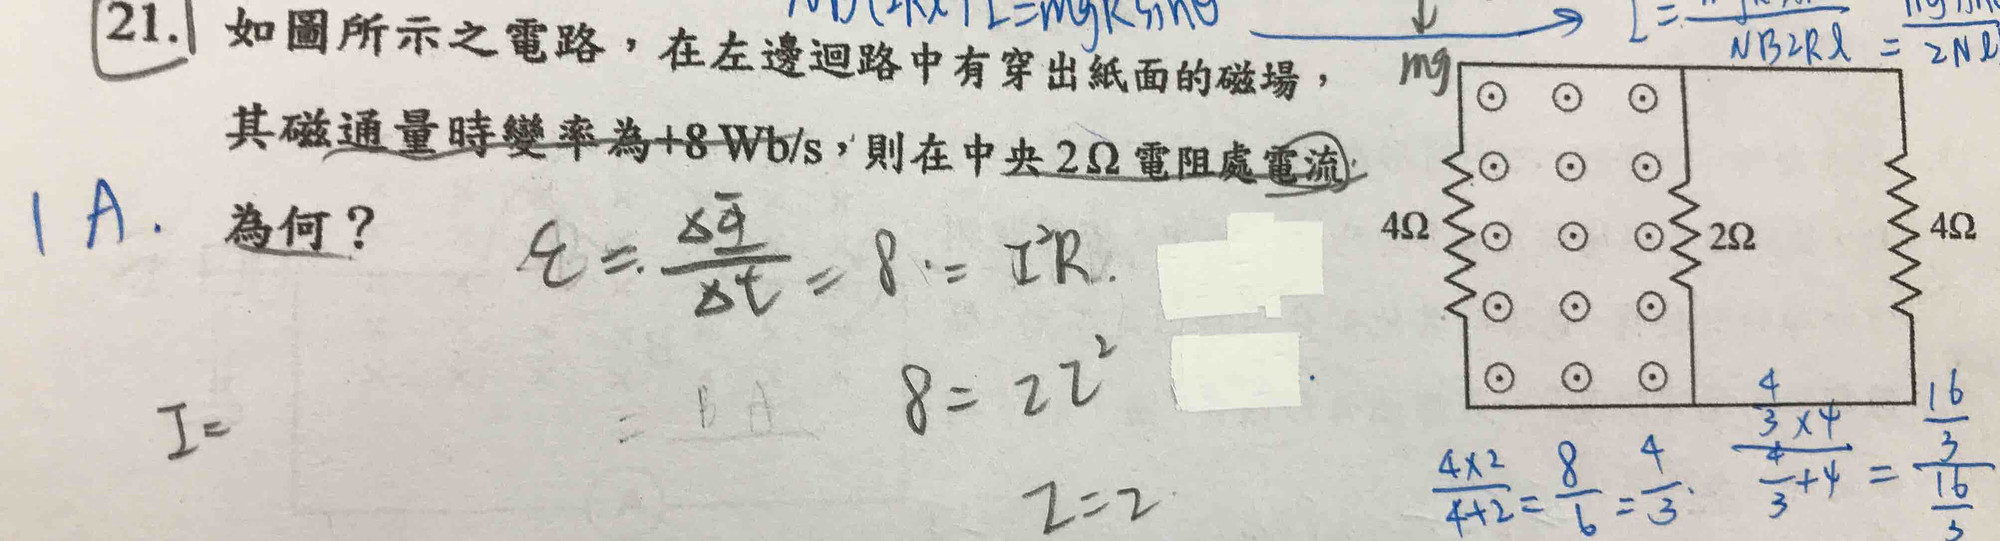 NB(2Rl)I=mgRsinθ
mg
NB2Rl = 2Nl
21. 如圖所示之電路,在左邊迴路中有穿出紙面的磁場,
其磁通量時變率為+8 Wb/s,則在中央2Ω電阻處電流
為何?
1 A.
ε = ΔΦ/Δt = 8 = I²R.
I=
= BA
8 = 2I²
I=2
4Ω
2Ω
4Ω
4×2/4+2 = 8/6 = 4/3.
4/3×4 / 4/3+4 = 16/3 / 16/3